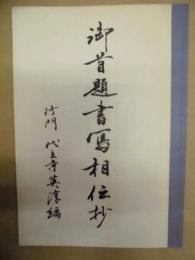 御首題書写相伝抄
沙門 代立寺英淳編